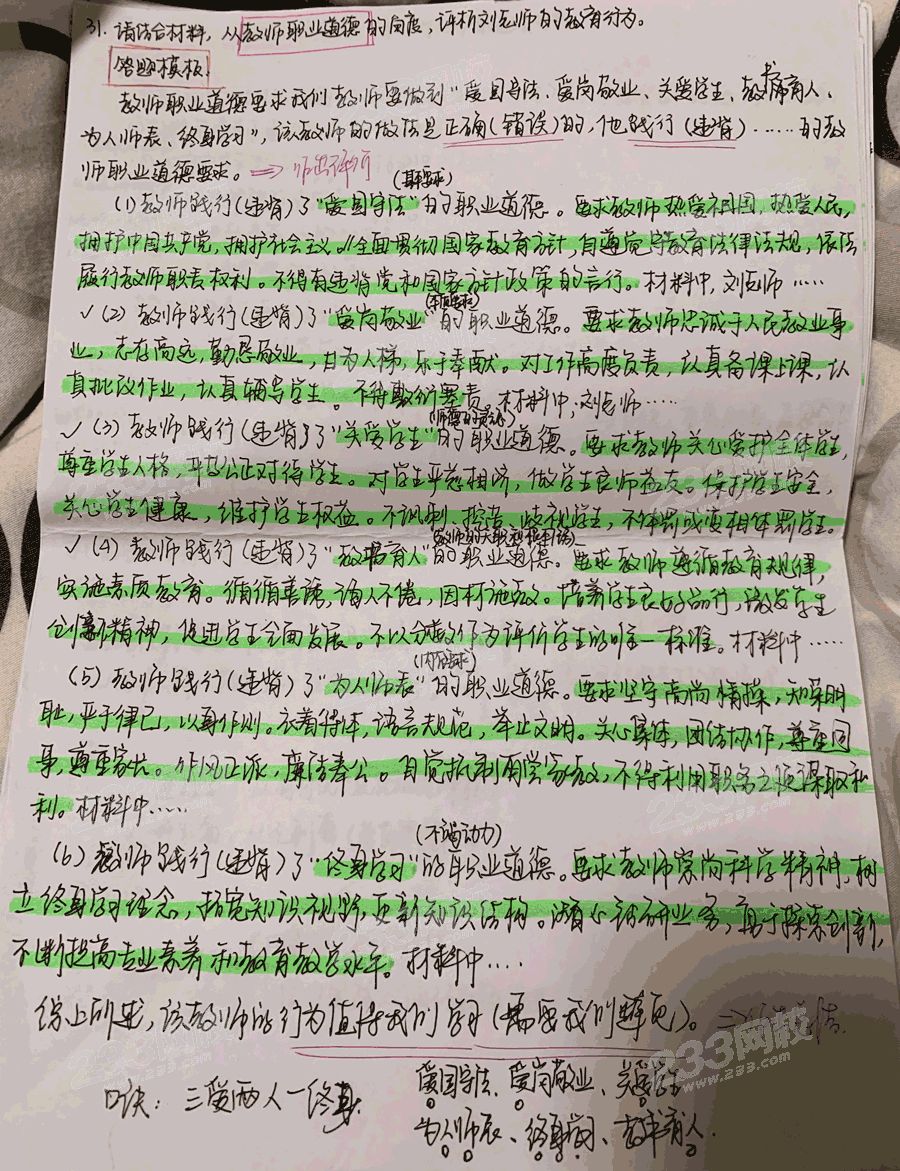 31. 请结合材料，从教师职业道德的角度，评析刘老师的教育行为。
答题模板
教师职业道德要求我们教师要做到“爱国守法、爱岗敬业、关爱学生、教书育人、
为人师表、终身学习”，该教师的做法是正确(错误)的，他践行(违背)……的教
师职业道德要求。⇒ 师出评析
(基本要求)
(1) 教师践行(违背)了“爱国守法”的职业道德。要求教师热爱祖国，热爱人民，
拥护中国共产党，拥护社会主义。全面贯彻国家教育方针，自遵党守教育法律法规，依法
履行教师职责权利。不得有违背党和国家方针政策的言行。材料中，刘老师……
(本质要求)
✓(2) 教师践行(违背)了“爱岗敬业”的职业道德。要求教师忠诚于人民教业事
业，志存高远，勤恳敬业，甘为人梯，乐于奉献。对工作高度负责，认真备课上课，认
真批改作业，认真辅导学生。不得敷衍塞责。材料中，刘老师……
(师德的灵魂)
✓(3) 教师践行(违背)了“关爱学生”的职业道德。要求教师关心爱护全体学生，
尊重学生人格，平等公正对待学生。对学生严慈相济，做学生良师益友。保护学生安全，
关心学生健康，维护学生权益。不讽刺、挖苦、歧视学生，不体罚或变相体罚学生。
✓(4) 教师践行(违背)了“教书育人”的职业道德。要求教师遵循教育规律，
实施素质教育。循循善诱，诲人不倦，因材施教。培养学生良好品行，激发学生
创新精神，促进学生全面发展。不以分数作为评价学生的唯一标准。材料中……
(内在要求)
(5) 教师践行(违背)了“为人师表”的职业道德。要求坚守高尚情操，知荣明
耻，严于律己，以身作则。衣着得体，语言规范，举止文明。关心集体，团结协作，尊重同
事，尊重家长。作风正派，廉洁奉公。自觉抵制有偿家教，不得利用职务之便谋取私
利。材料中……
(不竭动力)
(6) 教师践行(违背)了“终身学习”的职业道德。要求教师崇尚科学精神，树
立终身学习理念，拓宽知识视野，更新知识结构。潜心钻研业务，勇于探索创新，
不断提高专业素养和教育教学水平。材料中……
综上所述，该教师的行为值得我们学习(需要我们避免)。
口诀：三爱两人一终身
爱国守法、爱岗敬业、关爱学生
为人师表、终身学习、教书育人.
233网校
www.233.com